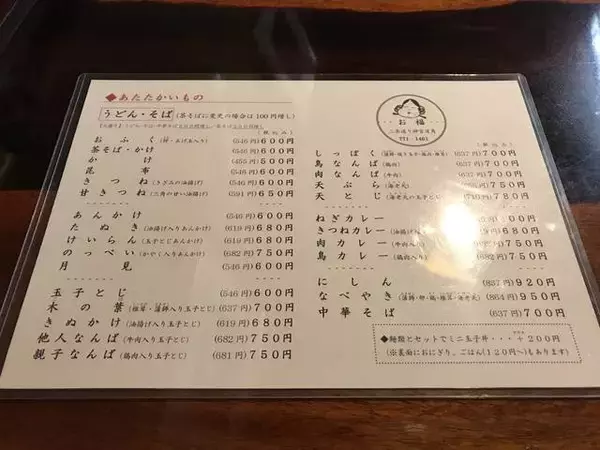 ◆あたたかいもの
うどん・そば (茶そばに変更の場合は100円増し)
(税込み)
おふく (546円) 600円
茶そば・かけ (546円) 600円
かけ (455円) 500円
昆布 (546円) 600円
きつね (きざみの油揚げ) (546円) 600円
甘きつね (三角の甘い油揚げ) (591円) 650円
あんかけ (546円) 600円
たぬき (油揚げ入りあんかけ) (619円) 680円
けいらん (玉子とじあんかけ) (619円) 680円
のっぺい (かやく入りあんかけ) (682円) 750円
月見 (546円) 600円
玉子とじ (546円) 600円
木の葉 (637円) 700円
きぬかけ (油揚げ入り玉子とじ) (619円) 680円
他人なんば (牛肉入り玉子とじ) (682円) 750円
親子なんば (鶏肉入り玉子とじ) (681円) 750円
お福
二条通り神宮道角
771-1401
(税込み)
しっぽく (637円) 700円
鳥なんば (鶏肉) 700円
肉なんば (牛肉) 700円
天ぷら (海老天) 750円
天とじ (海老天の玉子とじ) 780円
ねぎカレー
きつねカレー (油揚げ 680円
肉カレー (牛肉入り) 750円
鳥カレー (鶏肉入り) (682円) 750円
にしん (837円) 920円
なべやき (864円) 950円
中華そば (637円) 700円
◆麺類とセットでミニ玉子丼・・・+200円
(※裏面におにぎり、ごはん(120円〜)もあります)